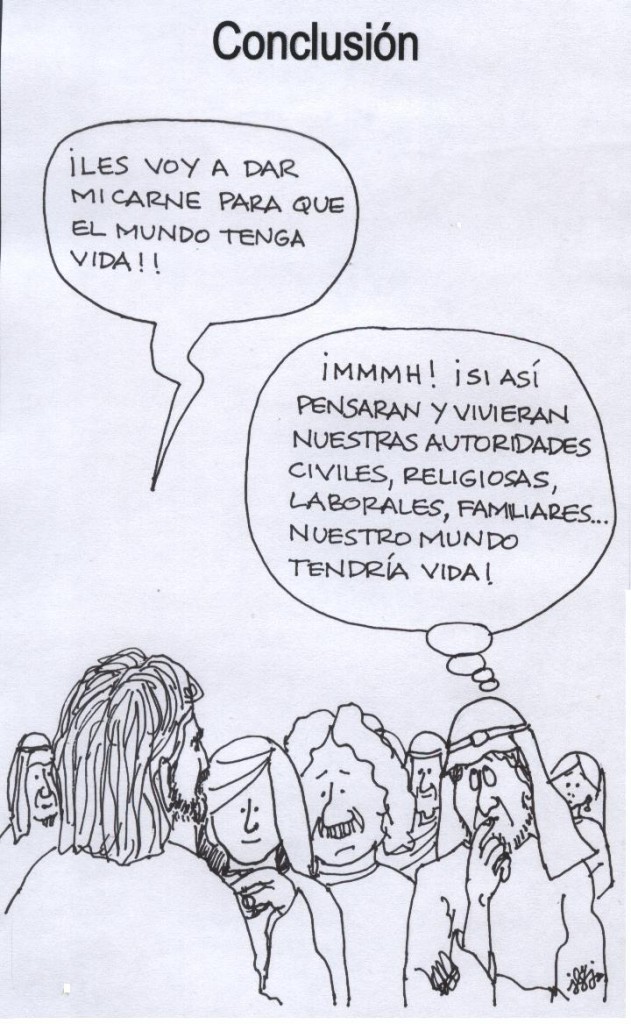 Conclusión
¡LES VOY A DAR
MI CARNE PARA QUE
EL MUNDO TENGA
VIDA!!
¡MMMH! ¡SI ASÍ
PENSARAN Y VIVIERAN
NUESTRAS AUTORIDADES
CIVILES, RELIGIOSAS,
LABORALES, FAMILIARES...
NUESTRO MUNDO
TENDRÍA VIDA!